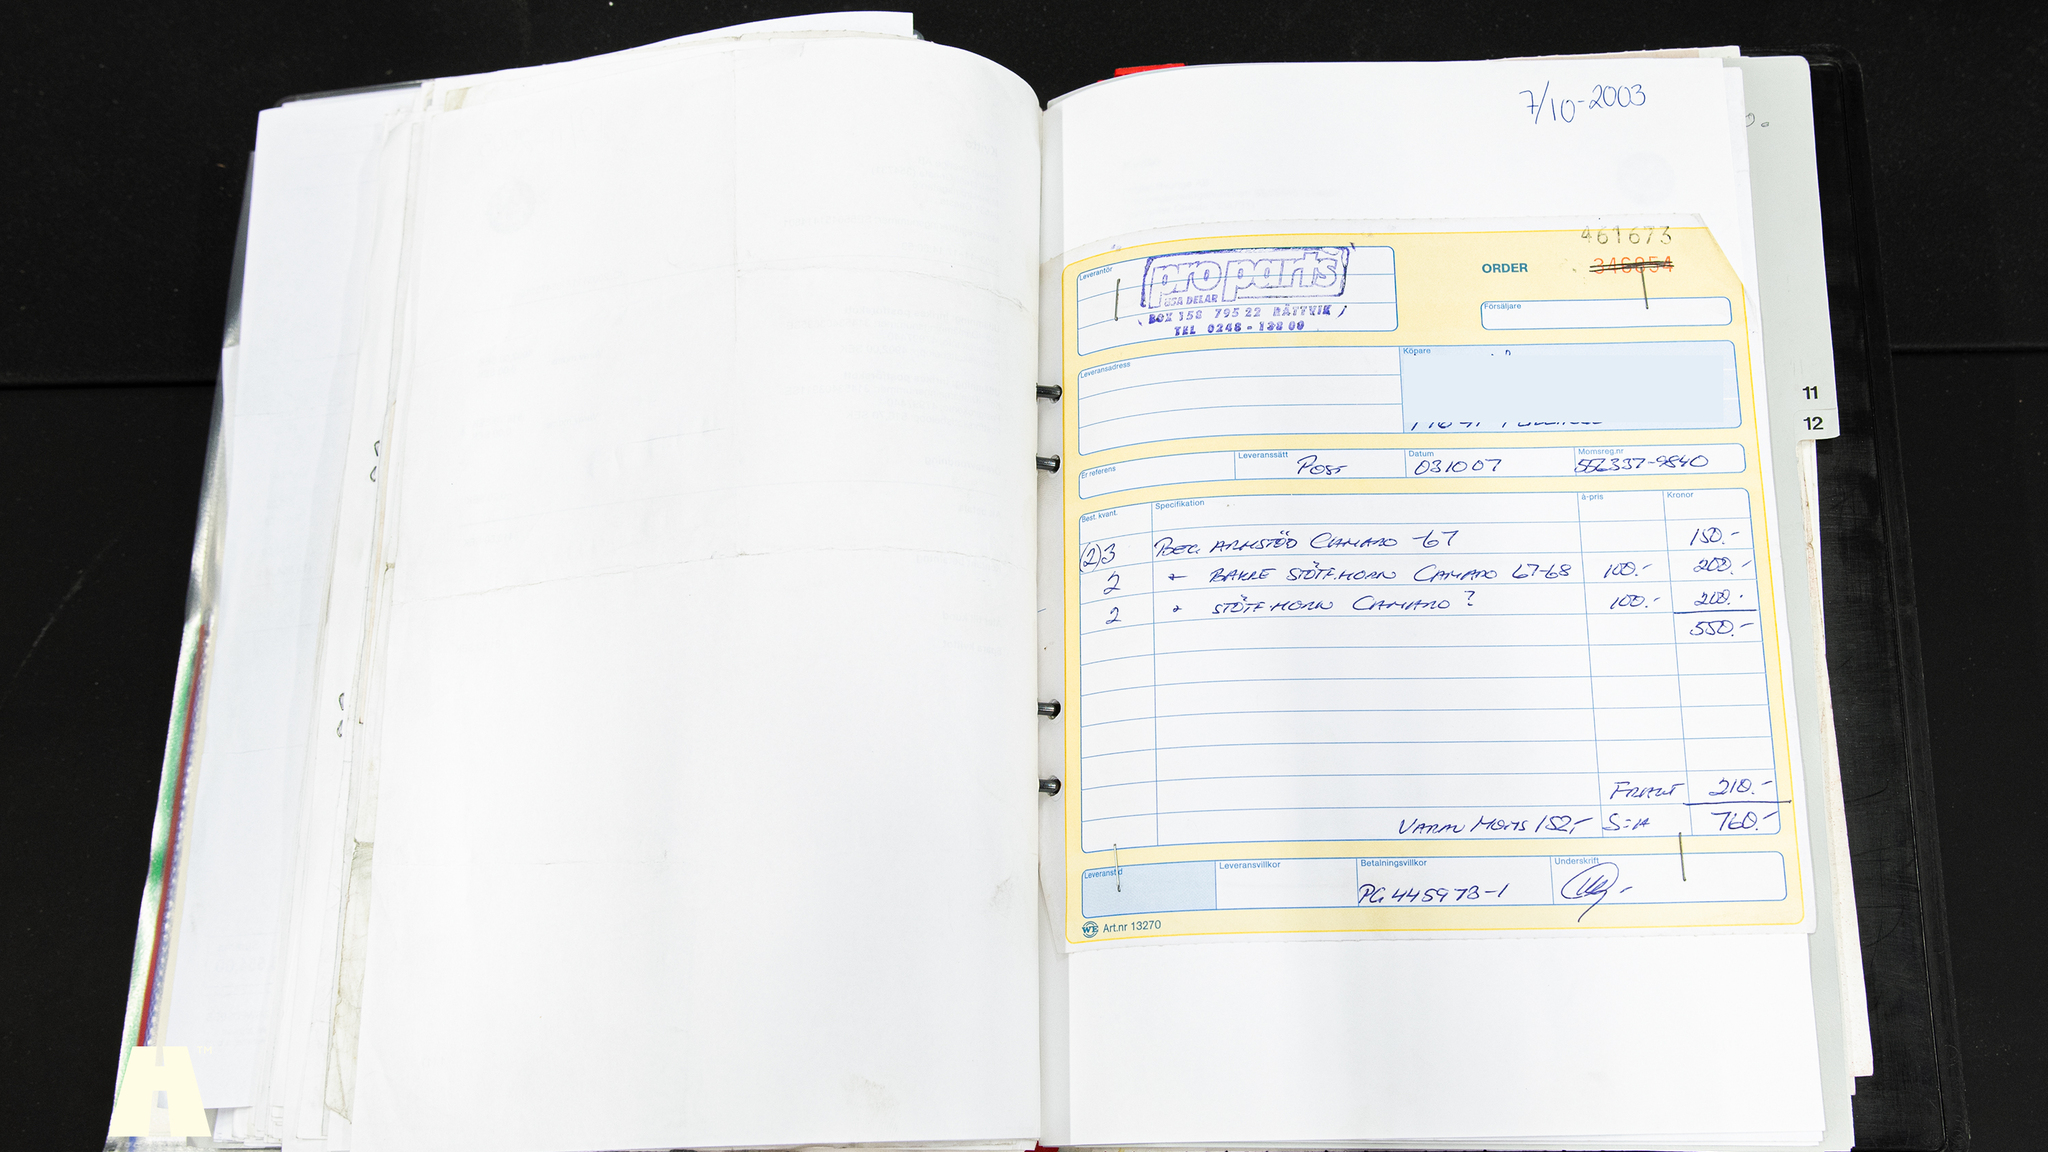 7/10-2003
461673
346054
ORDER
Leverantör
pro parts
USA DELAR
BOX 158 795 22 RÄTTVIK
TEL 0248-138 00
Försäljare
Leveransadress
Köpare
Er referens
Leveranssätt
Post
Datum
031007
Momsreg.nr
556337-9840
Best. kvant.
Specifikation
à-pris
Kronor
(2)3 Beg. ARMSTÖD CAMARO -67 150.-
2 " BAKRE STÖTF.HORN CAMARO 67-68 100.- 200.-
2 " STÖTF.HORN CAMARO ? 100.- 200.-
550.-
FRAKT 210.-
VARAV MOMS 152,- S:A 760.-
Leveranstid
Leveransvillkor
Betalningsvillkor
PG 445973-1
Underskrift
WE Art.nr 13270
11
12